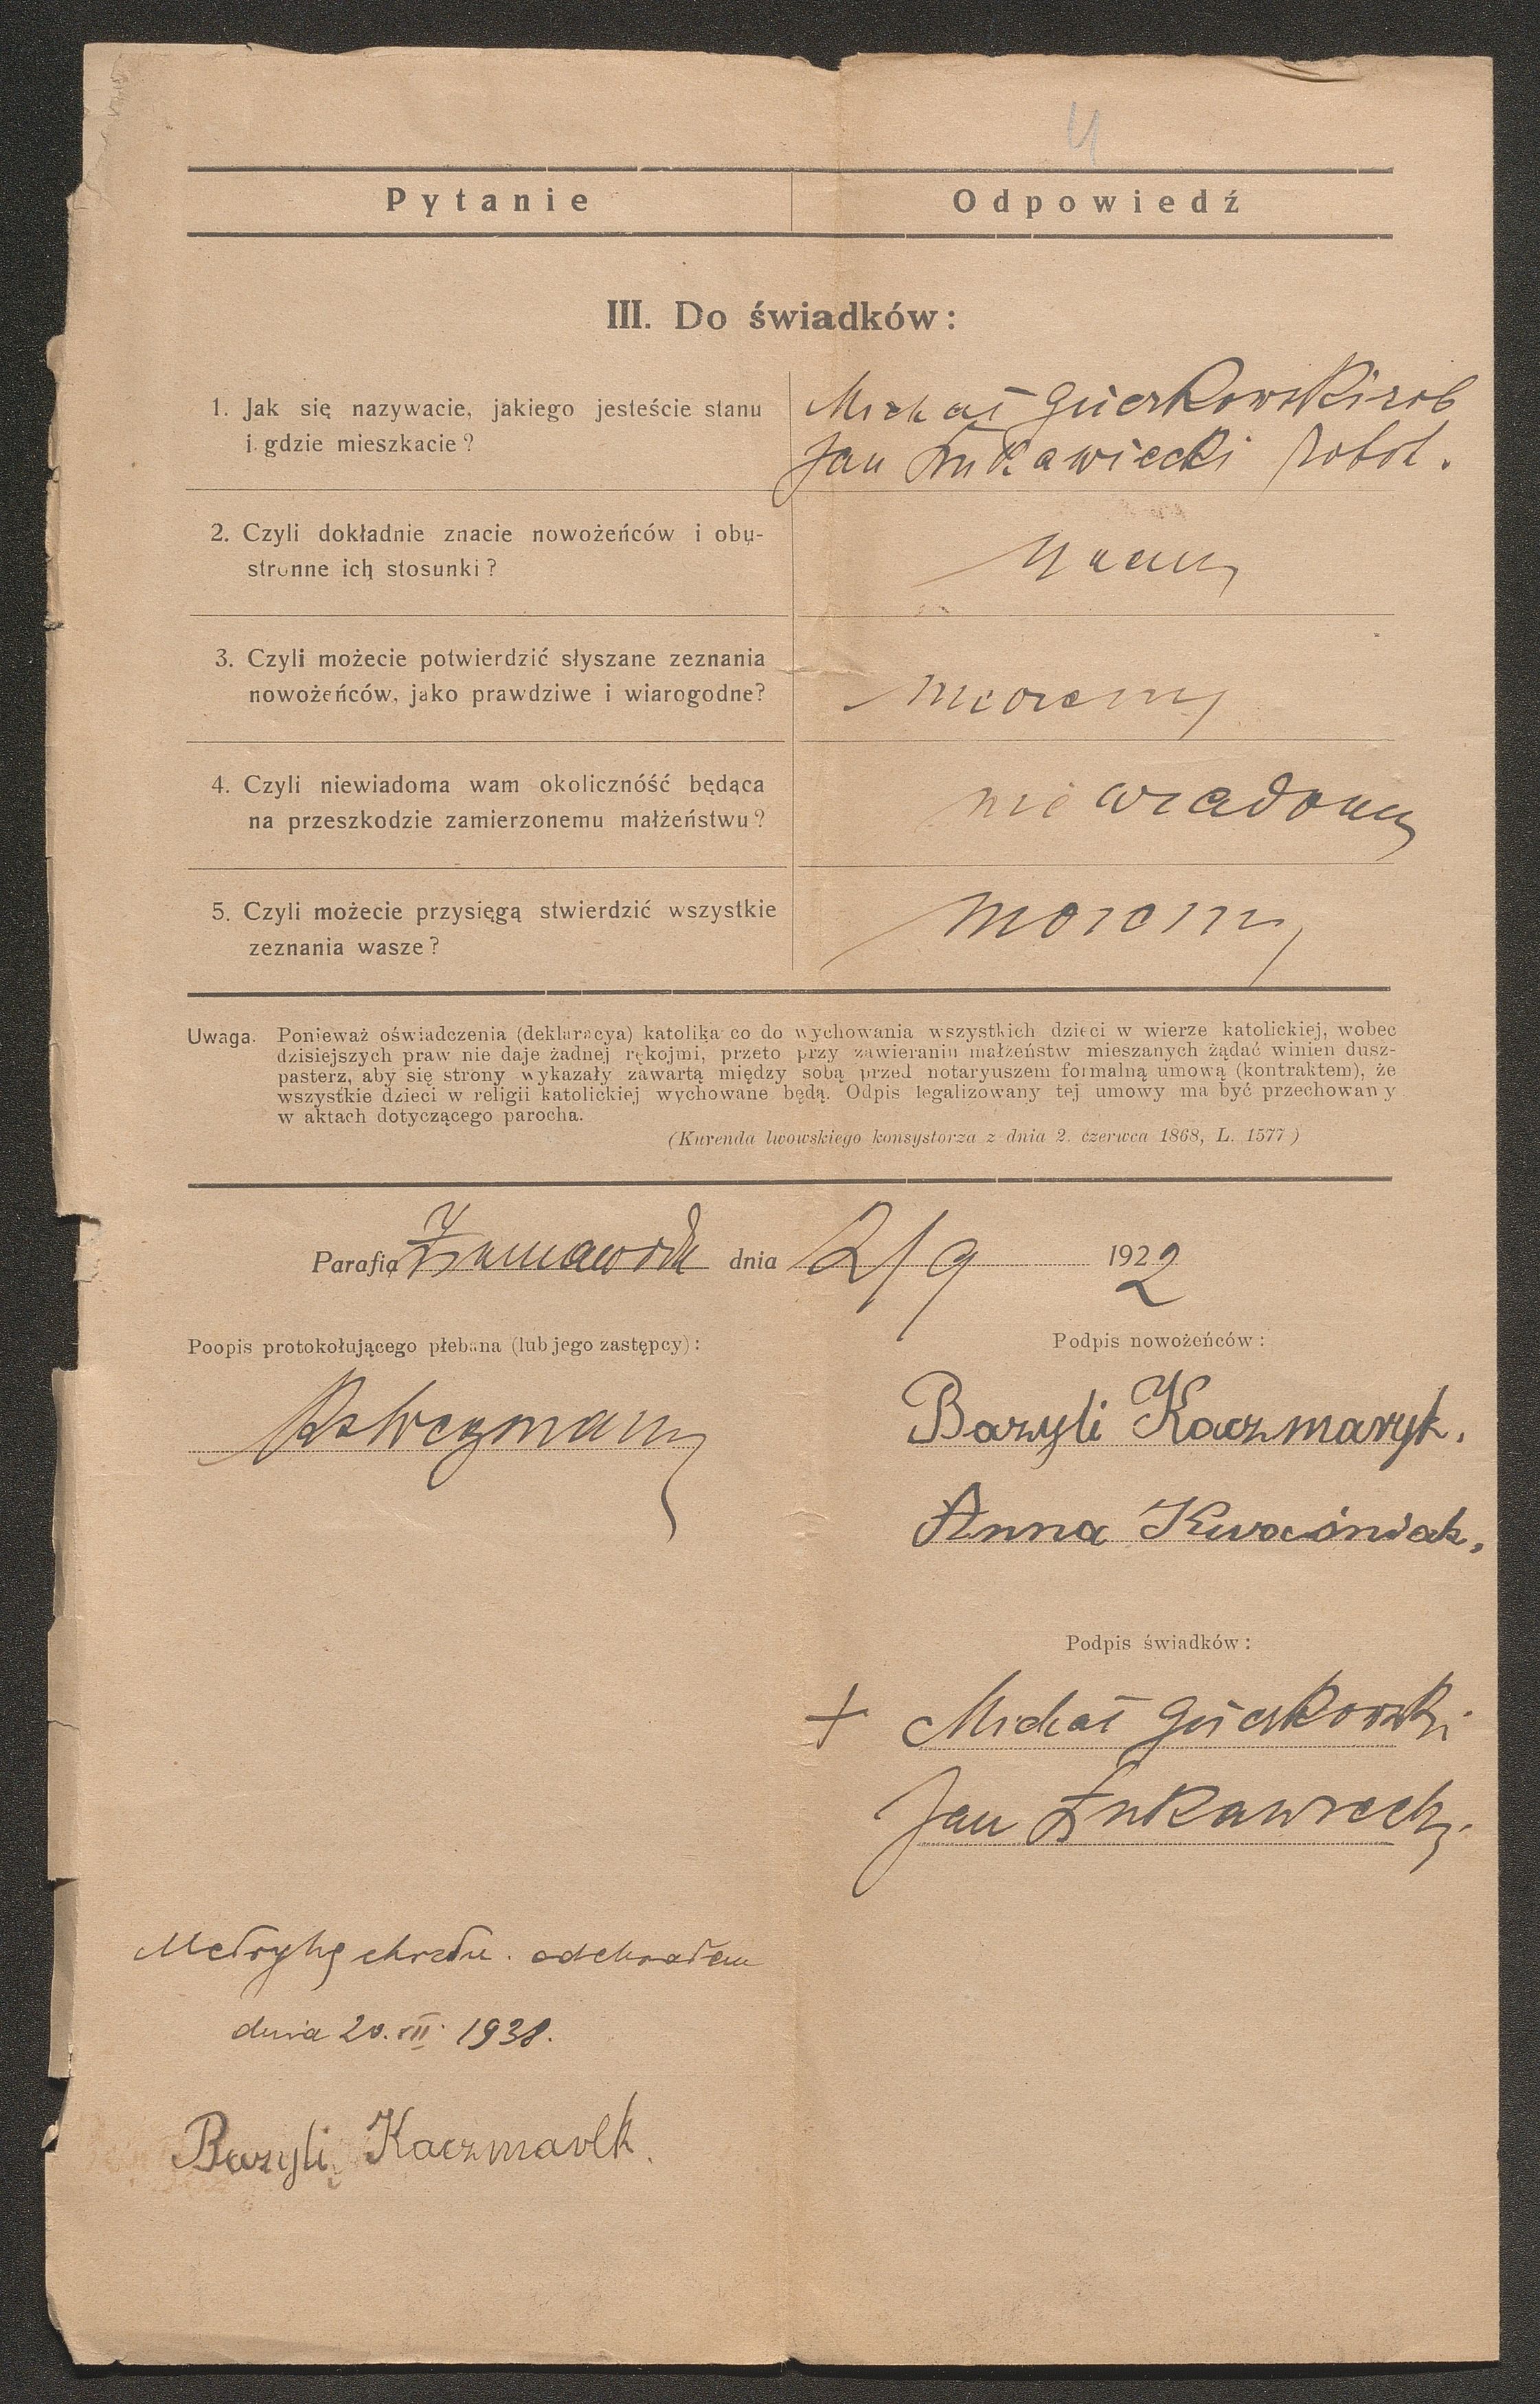 4
Pytanie
Odpowiedź
III. Do świadków:
1. Jak się nazywacie, jakiego jesteście stanu
i gdzie mieszkacie?
Michał Guerkowski rob
Jan Łukawiecki robot.
2. Czyli dokładnie znacie nowożeńców i obu-
stronne ich stosunki?
znamy
3. Czyli możecie potwierdzić słyszane zeznania
nowożeńców, jako prawdziwe i wiarogodne?
możemy
4. Czyli niewiadoma wam okoliczność będąca
na przeszkodzie zamierzonemu małżeństwu?
nie wiadomą
5. Czyli możecie przysięgą stwierdzić wszystkie
zeznania wasze?
możemy
Uwaga. Ponieważ oświadczenia (deklaracya) katolika co do wychowania wszystkich dzieci w wierze katolickiej, wobec
dzisiejszych praw nie daje żadnej rękojmi, przeto przy zawieraniu małżeństw mieszanych żądać winien dusz-
pasterz, aby się strony wykazały zawartą między sobą przed notaryuszem formalną umową (kontraktem), że
wszystkie dzieci w religii katolickiej wychowane będą. Odpis legalizowany tej umowy ma być przechowany
w aktach dotyczącego parocha.
(Kurenda lwowskiego konsystorza z dnia 2. czerwca 1868, L. 1577)
Parafia dnia 2/9 1922
Poopis protokołującego plebana (lub jego zastępcy):
Podpis nowożeńców:
Bazyli Kaczmaryk.
Anna Kwaśniak.
Podpis świadków:
+ Michał Guerkowski
Jan Łukawiecki.
Metrykę chrztu. odebrałem
dnia 20. VII. 1938.
Bazyli Kaczmarek.